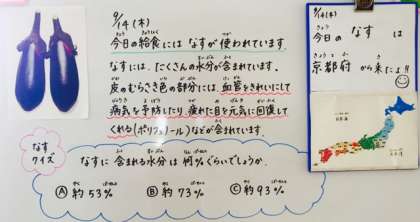 9/14(木)
今日の給食には なすが 使われています。
なすには、たくさんの水分が含まれています。
皮のむらさき色の部分には 血管をきれいにして
病気を予防したり 疲れた目を元気に回復して
くれる(ポリフェノール)などが含まれています。
なす
クイズ
なすに 含まれる水分は 何%ぐらいでしょうか。
Ⓐ 約53%
Ⓑ 約73%
Ⓒ 約93%
9/14(木)
今日の なす は
京都府 から来たよ!!